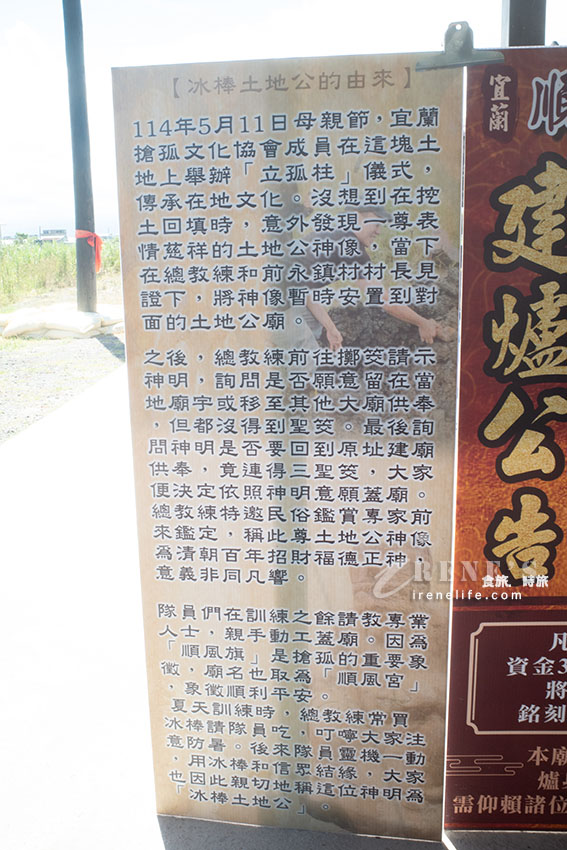 【冰棒土地公的由來】
114年5月11日母親節，宜蘭
搶孤文化協會成員在這塊土
地上舉辦「立孤柱」儀式，
傳承在地文化。沒想到在挖
土回填時，意外發現一尊表
情慈祥的土地公神像，當下
在總教練和前永鎮村村長見
證下，將神像暫時安置到對
面的土地公廟。
之後，總教練前往擲筊請示
神明，詢問是否願意留在當
地廟宇或移至其他大廟供奉
，但都沒得到聖筊。最後詢
問神明是否要回到原址建廟
供奉，竟連得三聖筊，大家
便決定依照神明意願蓋廟。
總教練特邀民俗鑑賞專家前
來鑑定，稱此尊土地公神像
為清朝百年招財福德正神，
意義非同凡響。
隊員們在訓練之餘請教專業
人士，親手動工蓋廟。因為
「順風旗」是搶孤的重要象
徵，廟名也取為「順風宮」
，象徵順利平安。
夏天訓練時，總教練常買
冰棒請隊員吃，叮嚀大家注
意防暑。後來隊員靈機一動
，用冰棒和信眾結緣，大家
也因此親切地稱這位神明為
「冰棒土地公」。
宜蘭
順
建爐公告
凡
資金3
將
銘刻
本廟
爐
需仰賴諸位
IRENE'S
食旅．時旅
irenelife.com